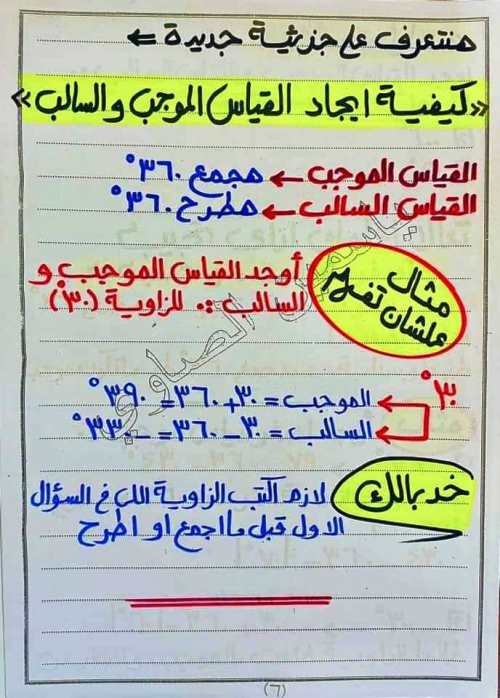 هنتعرف على جزئية جديدة ←
«كيفية ايجاد القياس الموجب والسالب»
القياس الموجب ← هجمع ٣٦٠°
القياس السالب ← هطرح ٣٦٠°
مثال
علشان تفهم
أوجد القياس الموجب و
السالب :. للزاوية (٣٠°)
٣٠°
الموجب = ٣٠ + ٣٦٠ = ٣٩٠°
السالب = ٣٠ - ٣٦٠ = -٣٣٠°
خد بالك
لازم اكتب الزاوية اللي في السؤال
الاول قبل ما اجمع او اطرح
ياسمين الصاوي
(٦)